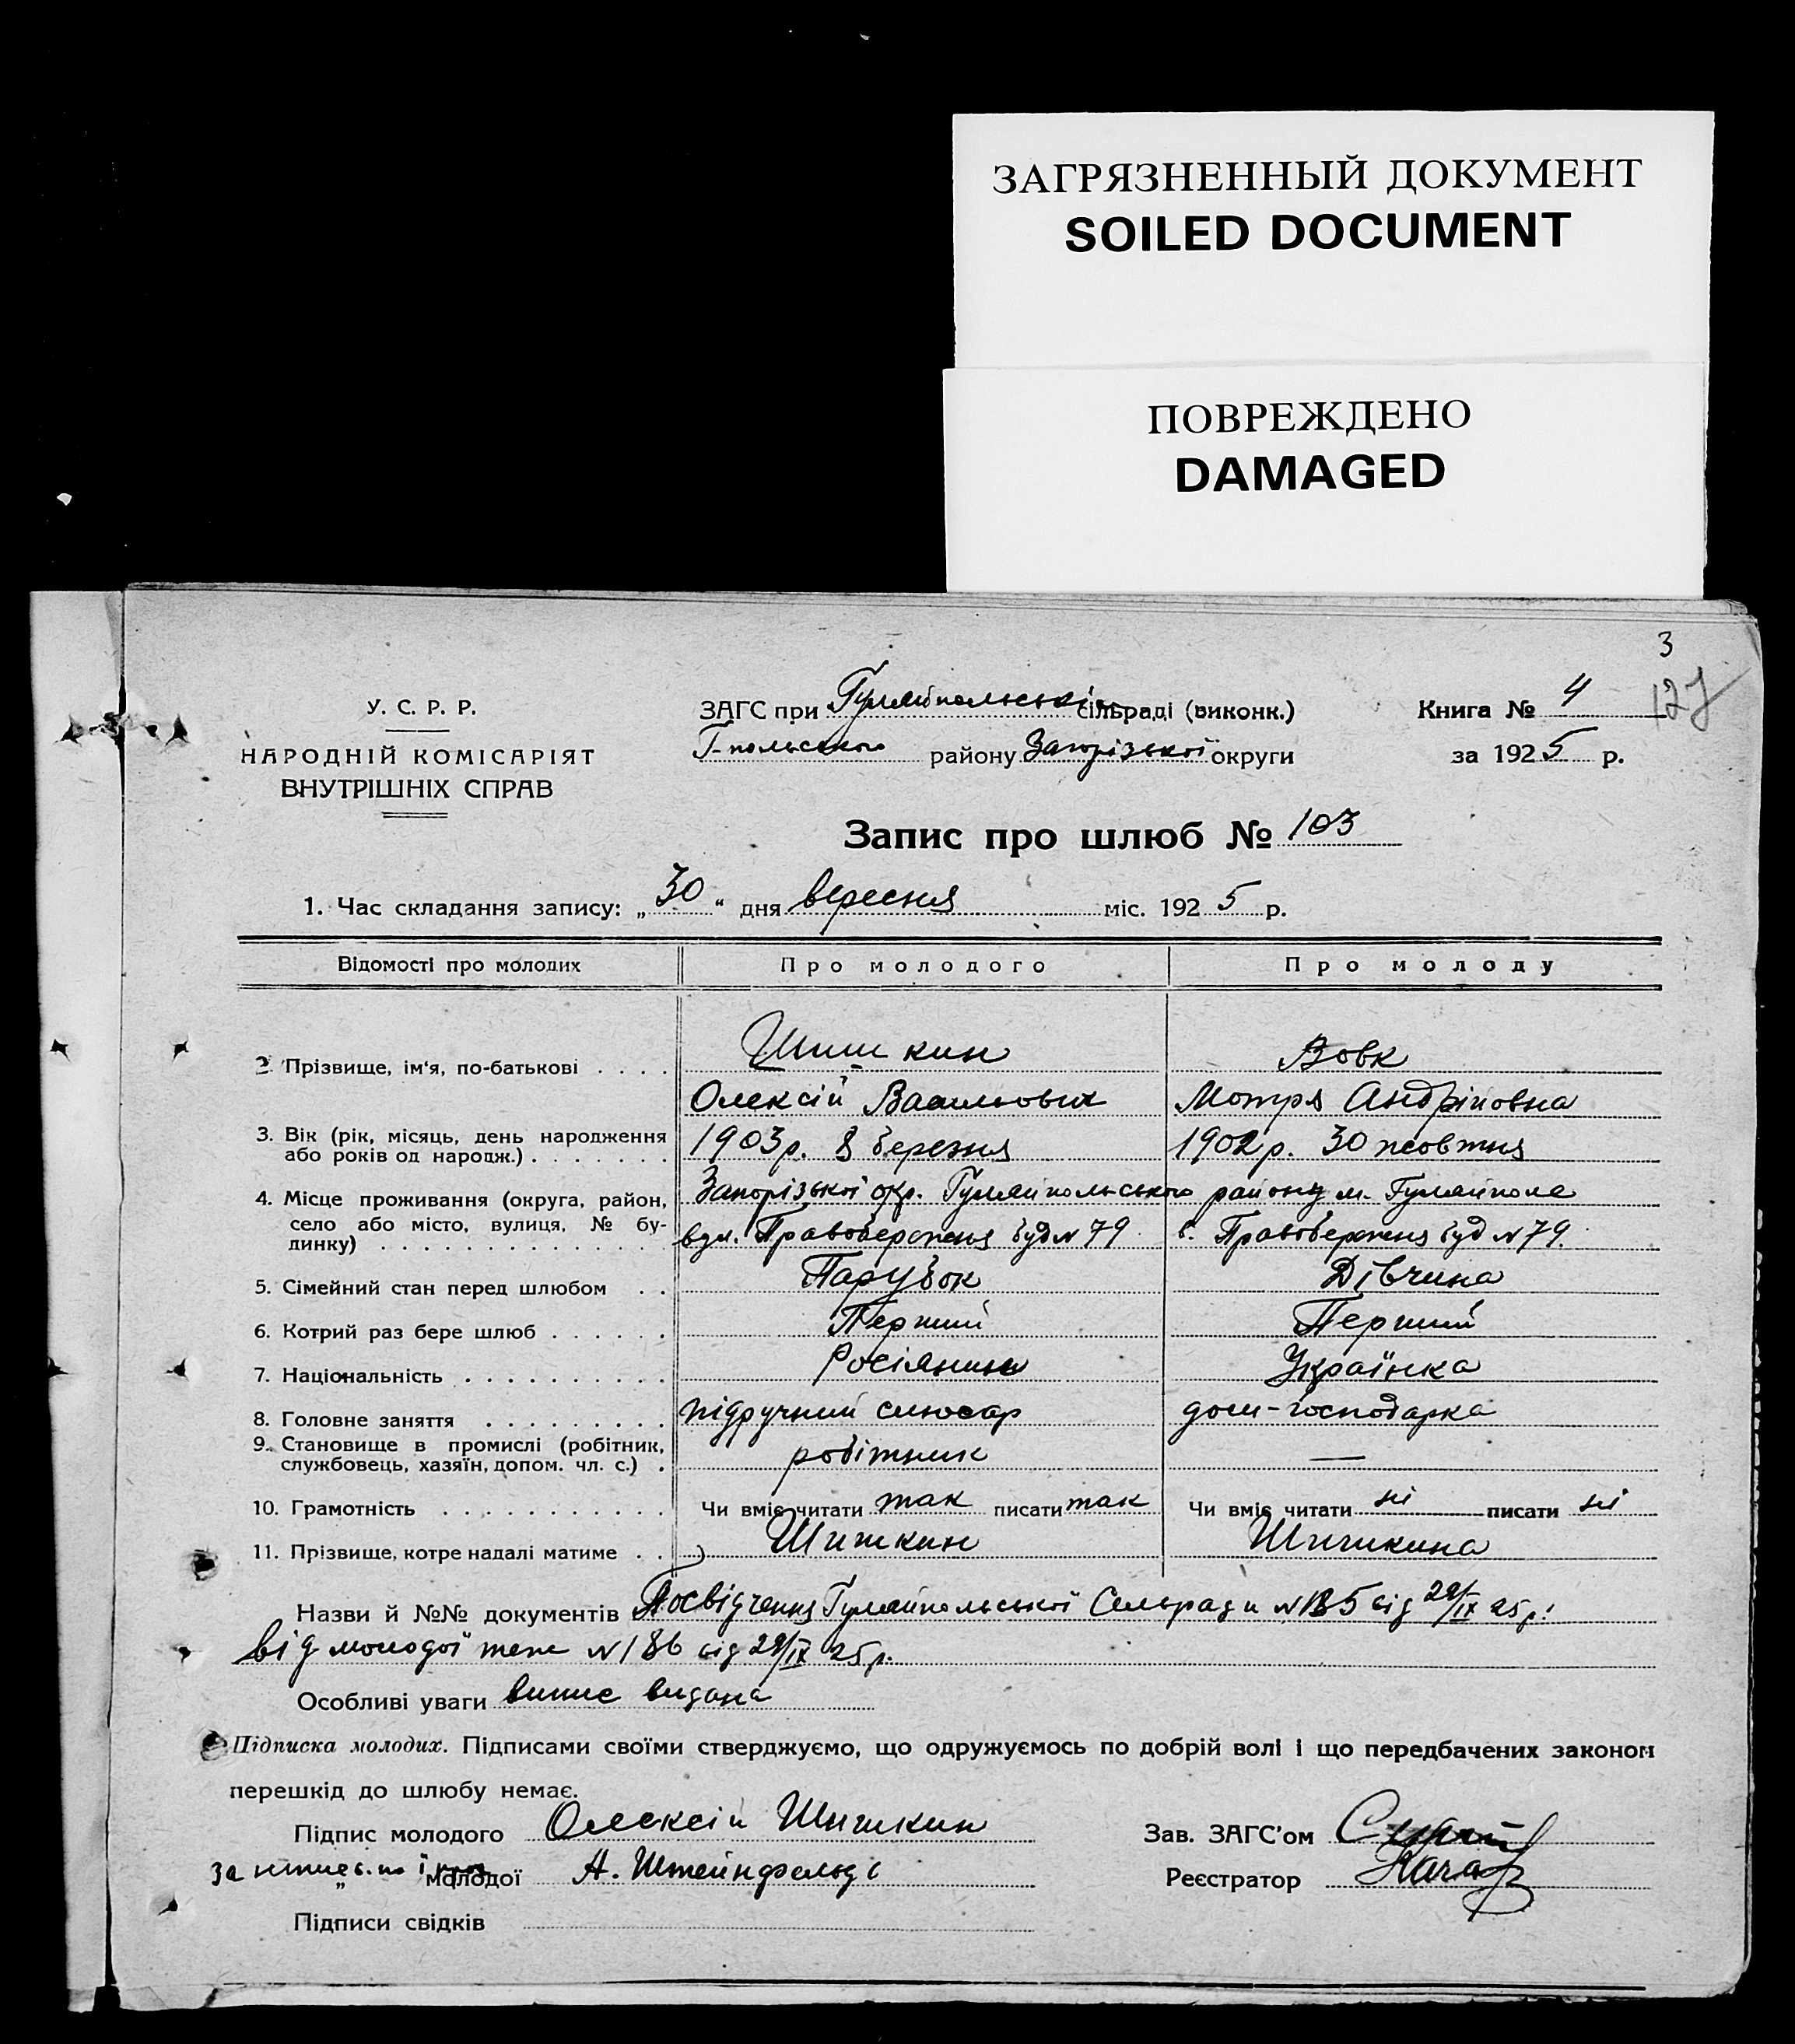 ЗАГРЯЗНЕННЫЙ ДОКУМЕНТ
SOILED DOCUMENT
ПОВРЕЖДЕНО
DAMAGED
3
127
У. С. Р. Р.
НАРОДНІЙ КОМІСАРІЯТ
ВНУТРІШНІХ СПРАВ
ЗАГС при Гуляйпольській сільраді (виконк.)
Г-польского району Запорізької округи
Книга № 4
за 1925 р.
Запис про шлюб № 103
1. Час складання запису: „30“ дня вересня міс. 1925 р.
Відомості про молодих Про молодого Про молоду
2. Прізвище, ім'я, по-батькові . . . . Шишкин Вовк
Олексій Васильович Мотря Андріповна
3. Вік (рік, місяць, день народження або років од народж.) . . . . . . . 1903 р. 8 березня 1902 р. 30 жовтня
4. Місце проживання (округа, район, село або місто, вулиця, № будинку) . . . Запорізької окр. Гуляйпольського району м. Гуляйполе
вул. Правобережня буд № 79 в. Правобережня буд № 79.
5. Сімейний стан перед шлюбом . . Парубок Дівчина
6. Котрий раз бере шлюб . . . . . . Перший Перший
7. Національність . . . . . . . . . . Росіянин Українка
8. Головне заняття . . . . . . . . . підручний слюсар дом-господарка
9. Становище в промислі (робітник, службовець, хазяїн, допом. чл. с.) . робітник —
10. Грамотність . . . . . . . . . . . Чи вміє читати так писати так Чи вміє читати ні писати ні
11. Прізвище, котре надалі матиме . . Шишкин Шишкина
Назви й №№ документів Посвідчення Гуляйпольської Сельради № 185 від 29/IX 25 р.
від молодої теж № 186 від 29/IX 25 р.
Особливі уваги випис видана
Підписка молодих. Підписами своїми стверджуємо, що одружуємось по добрій волі і що передбачених законом
перешкід до шлюбу немає.
Підпис молодого Олексій Шишкин Зав. ЗАГС'ом
за „ молодої А. Штейнфельд Реєстратор
Підписи свідків